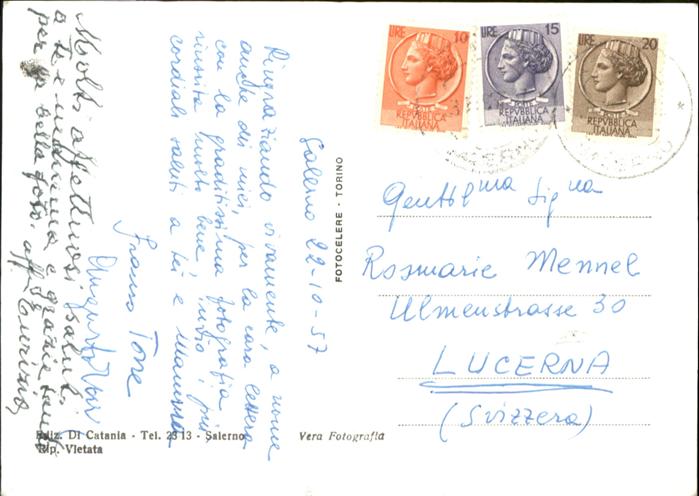 LIRE 10
POSTE
REPVBBLICA
ITALIANA
LIRE 15
POSTE
REPVBBLICA
ITALIANA
LIRE 20
POSTE
REPVBBLICA
ITALIANA
SALERNO
Salerno 22-10-57
Ringraziando vivamente, a nome
anche dei miei, per la cara lettera
con la graditissima fotografia
riuscita molto bene, invio i più
cordiali saluti a lei e Mamma
Franco Torre
Molti affettuosi saluti
a te e mamma e grazie tanto
per la bella foto. aff.
FOTOCELERE - TORINO
Gentil.ma Sig.na
Rosmarie Mennel
Ulmenstrasse 30
LUCERNA
(Svizzera)
Ediz. Di Catania - Tel. 23 13 - Salerno
Rip. Vietata
Vera Fotografia